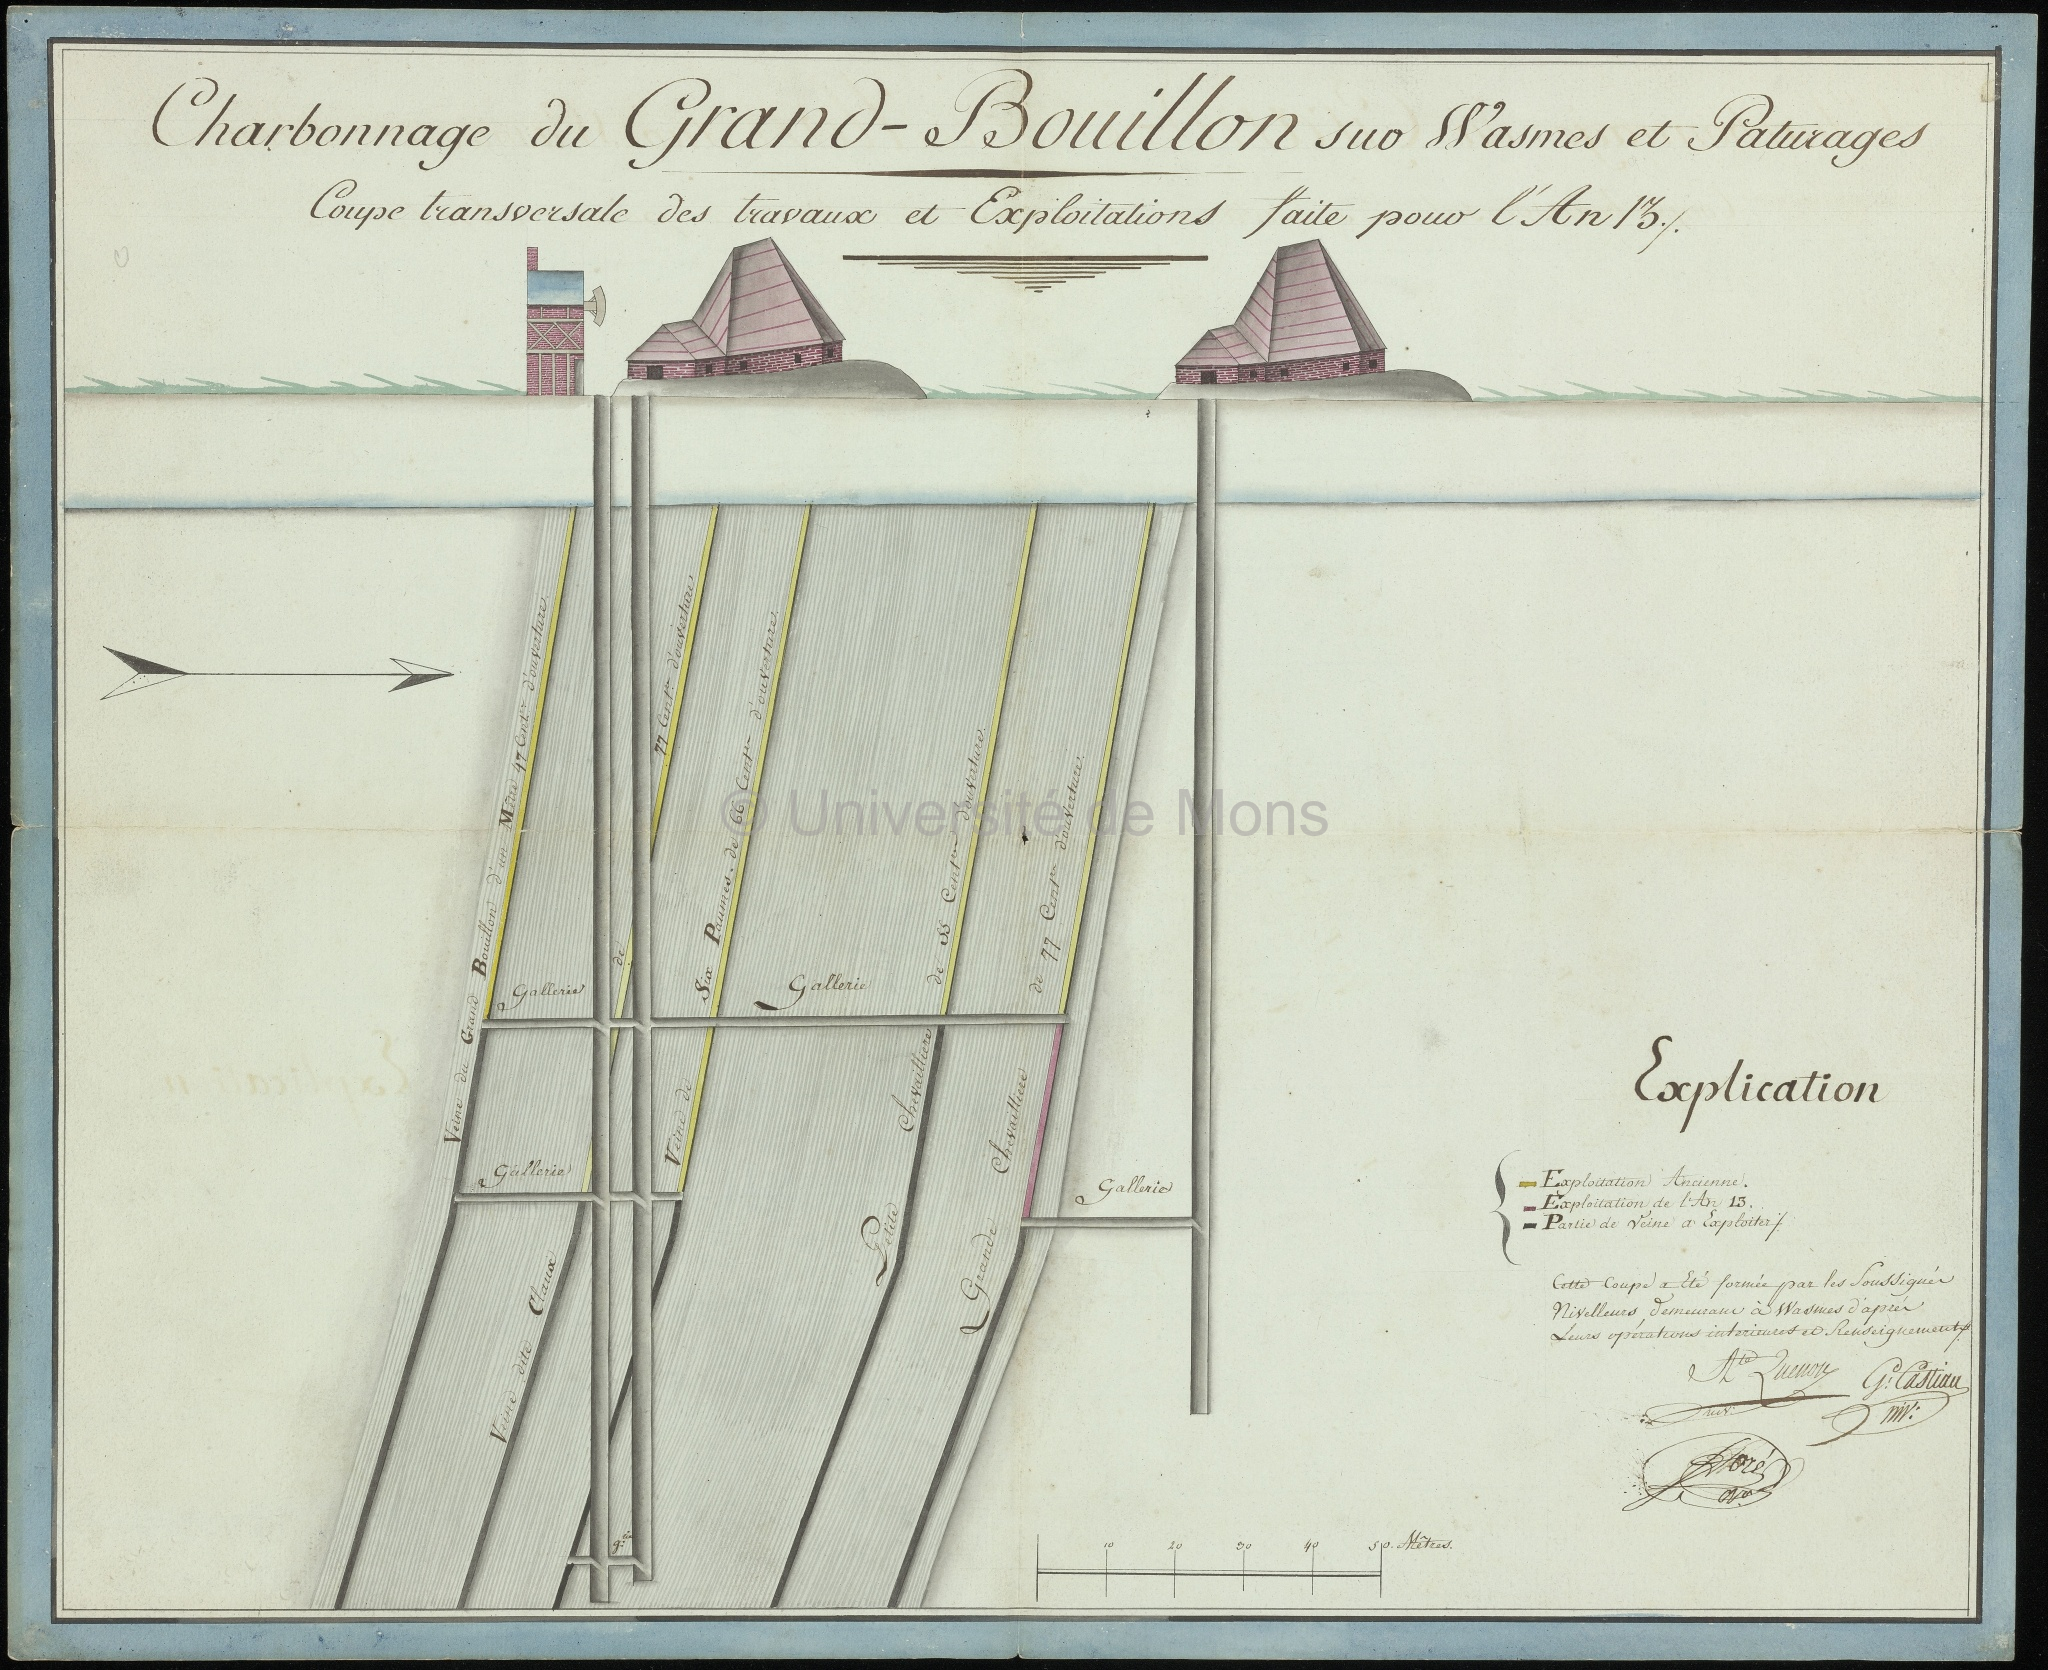 Charbonnage du Grand-Bouillon sur Wasmes et Paturages
Coupe transversale des travaux et Exploitations faite pour l'An 13./.
Veine du Grand Bouillon d'un Mètre 47 Cent.es d'ouverture.
Veine dite Claux de 77 Cent.es d'ouverture
Veine de Six Paumes. de 66 Cent.es d'ouverture.
Petite Chevaillière de 55 Cent.es d'ouverture.
Grande Chevaillière de 77 Cent.es d'ouverture.
Gallerie
Gallerie
Gallerie
Gallerie
g.ie
© Université de Mons
Explication
Exploitation Ancienne.
Exploitation de l'An 13.
Partie de Veine a Exploiter ./.
Cette Coupe a Eté formée par les Soussignés
Nivelleurs demeurant à Wasmes d'après
Leurs opérations intérieures et Renseignements ./.
Quenon G. Castiau
niv:
10 20 30 40 50. Mètres.